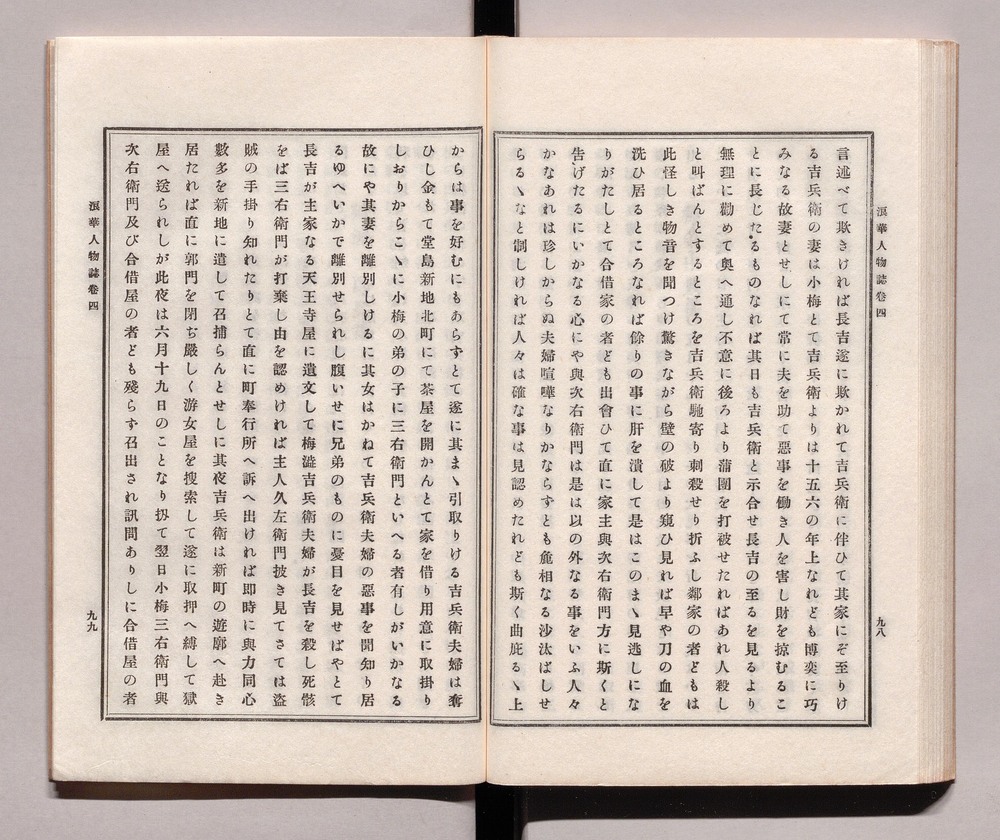 浪華人物誌卷四
九八
言述べて欺きければ長吉遂に欺かれて吉兵衛に伴ひて其家にぞ至りけ
る吉兵衛の妻は小梅とて吉兵衛よりは十五六の年上なれども博奕に巧
みなる故妻とせしにて常に夫を助て惡事を働き人を害し財を掠むるこ
とに長じたるものなれば其日も吉兵衛と示合せ長吉の至るを見るより
無理に勸めて奥へ通し不意に後ろより蒲團を打被せたればあれ人殺し
と叫ばんとするところを吉兵衛馳寄り刺殺せり折ふし鄰家の者どもは
此怪しき物音を聞つけ驚きながら壁の破より窺ひ見れば早や刀の血を
洗ひ居るところなれば餘りの事に肝を潰して是はこのまゝ見逃しにな
りがたしとて合借家の者ども出會ひて直に家主與次右衛門方に斯くと
告げたるにいかなる心にや與次右衛門は是は以の外なる事をいふ人々
かなあれは珍しからぬ夫婦喧嘩なりかならずとも麁相なる沙汰ばしせ
らるゝなと制しければ人々は確な事は見認めたれども斯く曲庇るゝ上
からは事を好むにもあらずとて遂に其まゝ引取りける吉兵衛夫婦は奪
ひし金もて堂島新地北町にて茶屋を開かんとて家を借り用意に取掛り
しおりからこゝに小梅の弟の子に三右衛門といへる者有しがいかなる
故にや其妻を離別しけるに其女はかねて吉兵衛夫婦の惡事を聞知り居
るゆへいかで離別せられし腹いせに兄弟のものに憂目を見せばやとて
長吉が主家なる天王寺屋に遺文して梅澁吉兵衛夫婦が長吉を殺し死骸
をば三右衛門が打棄し由を認めければ主人久左衛門披き見てさては盜
賊の手掛り知れたりとて直に町奉行所へ訴へ出ければ即時に與力同心
數多を新地に遣して召捕らんとせしに其夜吉兵衛は新町の遊廓へ赴き
居たれば直に郭門を閉ぢ嚴しく游女屋を搜索して遂に取押へ縛して獄
屋へ送られしが此夜は六月十九日のことなり扨て翌日小梅三右衛門與
次右衛門及び合借屋の者ども殘らす召出され訊問ありしに合借屋の者
浪華人物誌卷四
九九